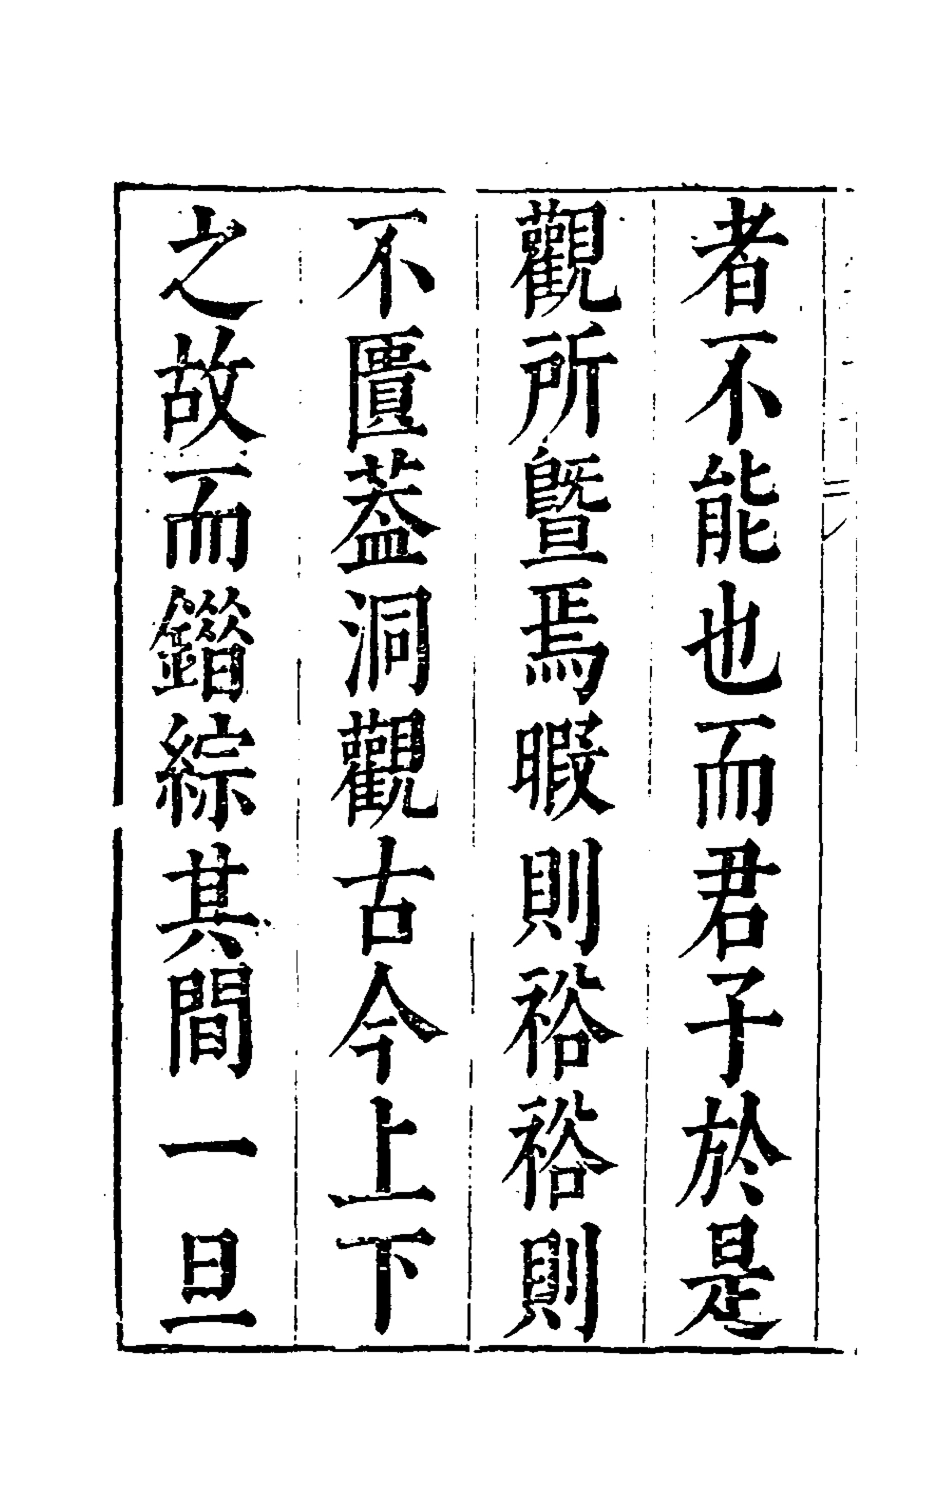 者不能也而君子於是
觀所暨焉暇則裕裕則
不匱葢洞觀古今上下
之故而錯綜其間一旦